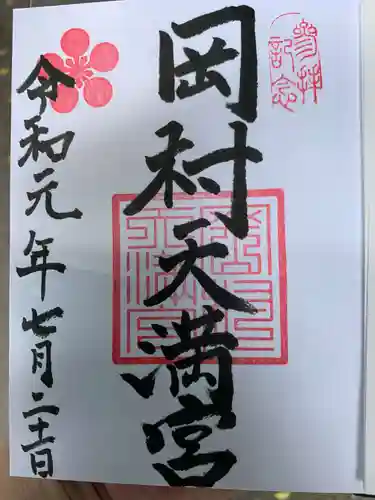 参拝記念
岡村天満宮
令和元年七月二十二日